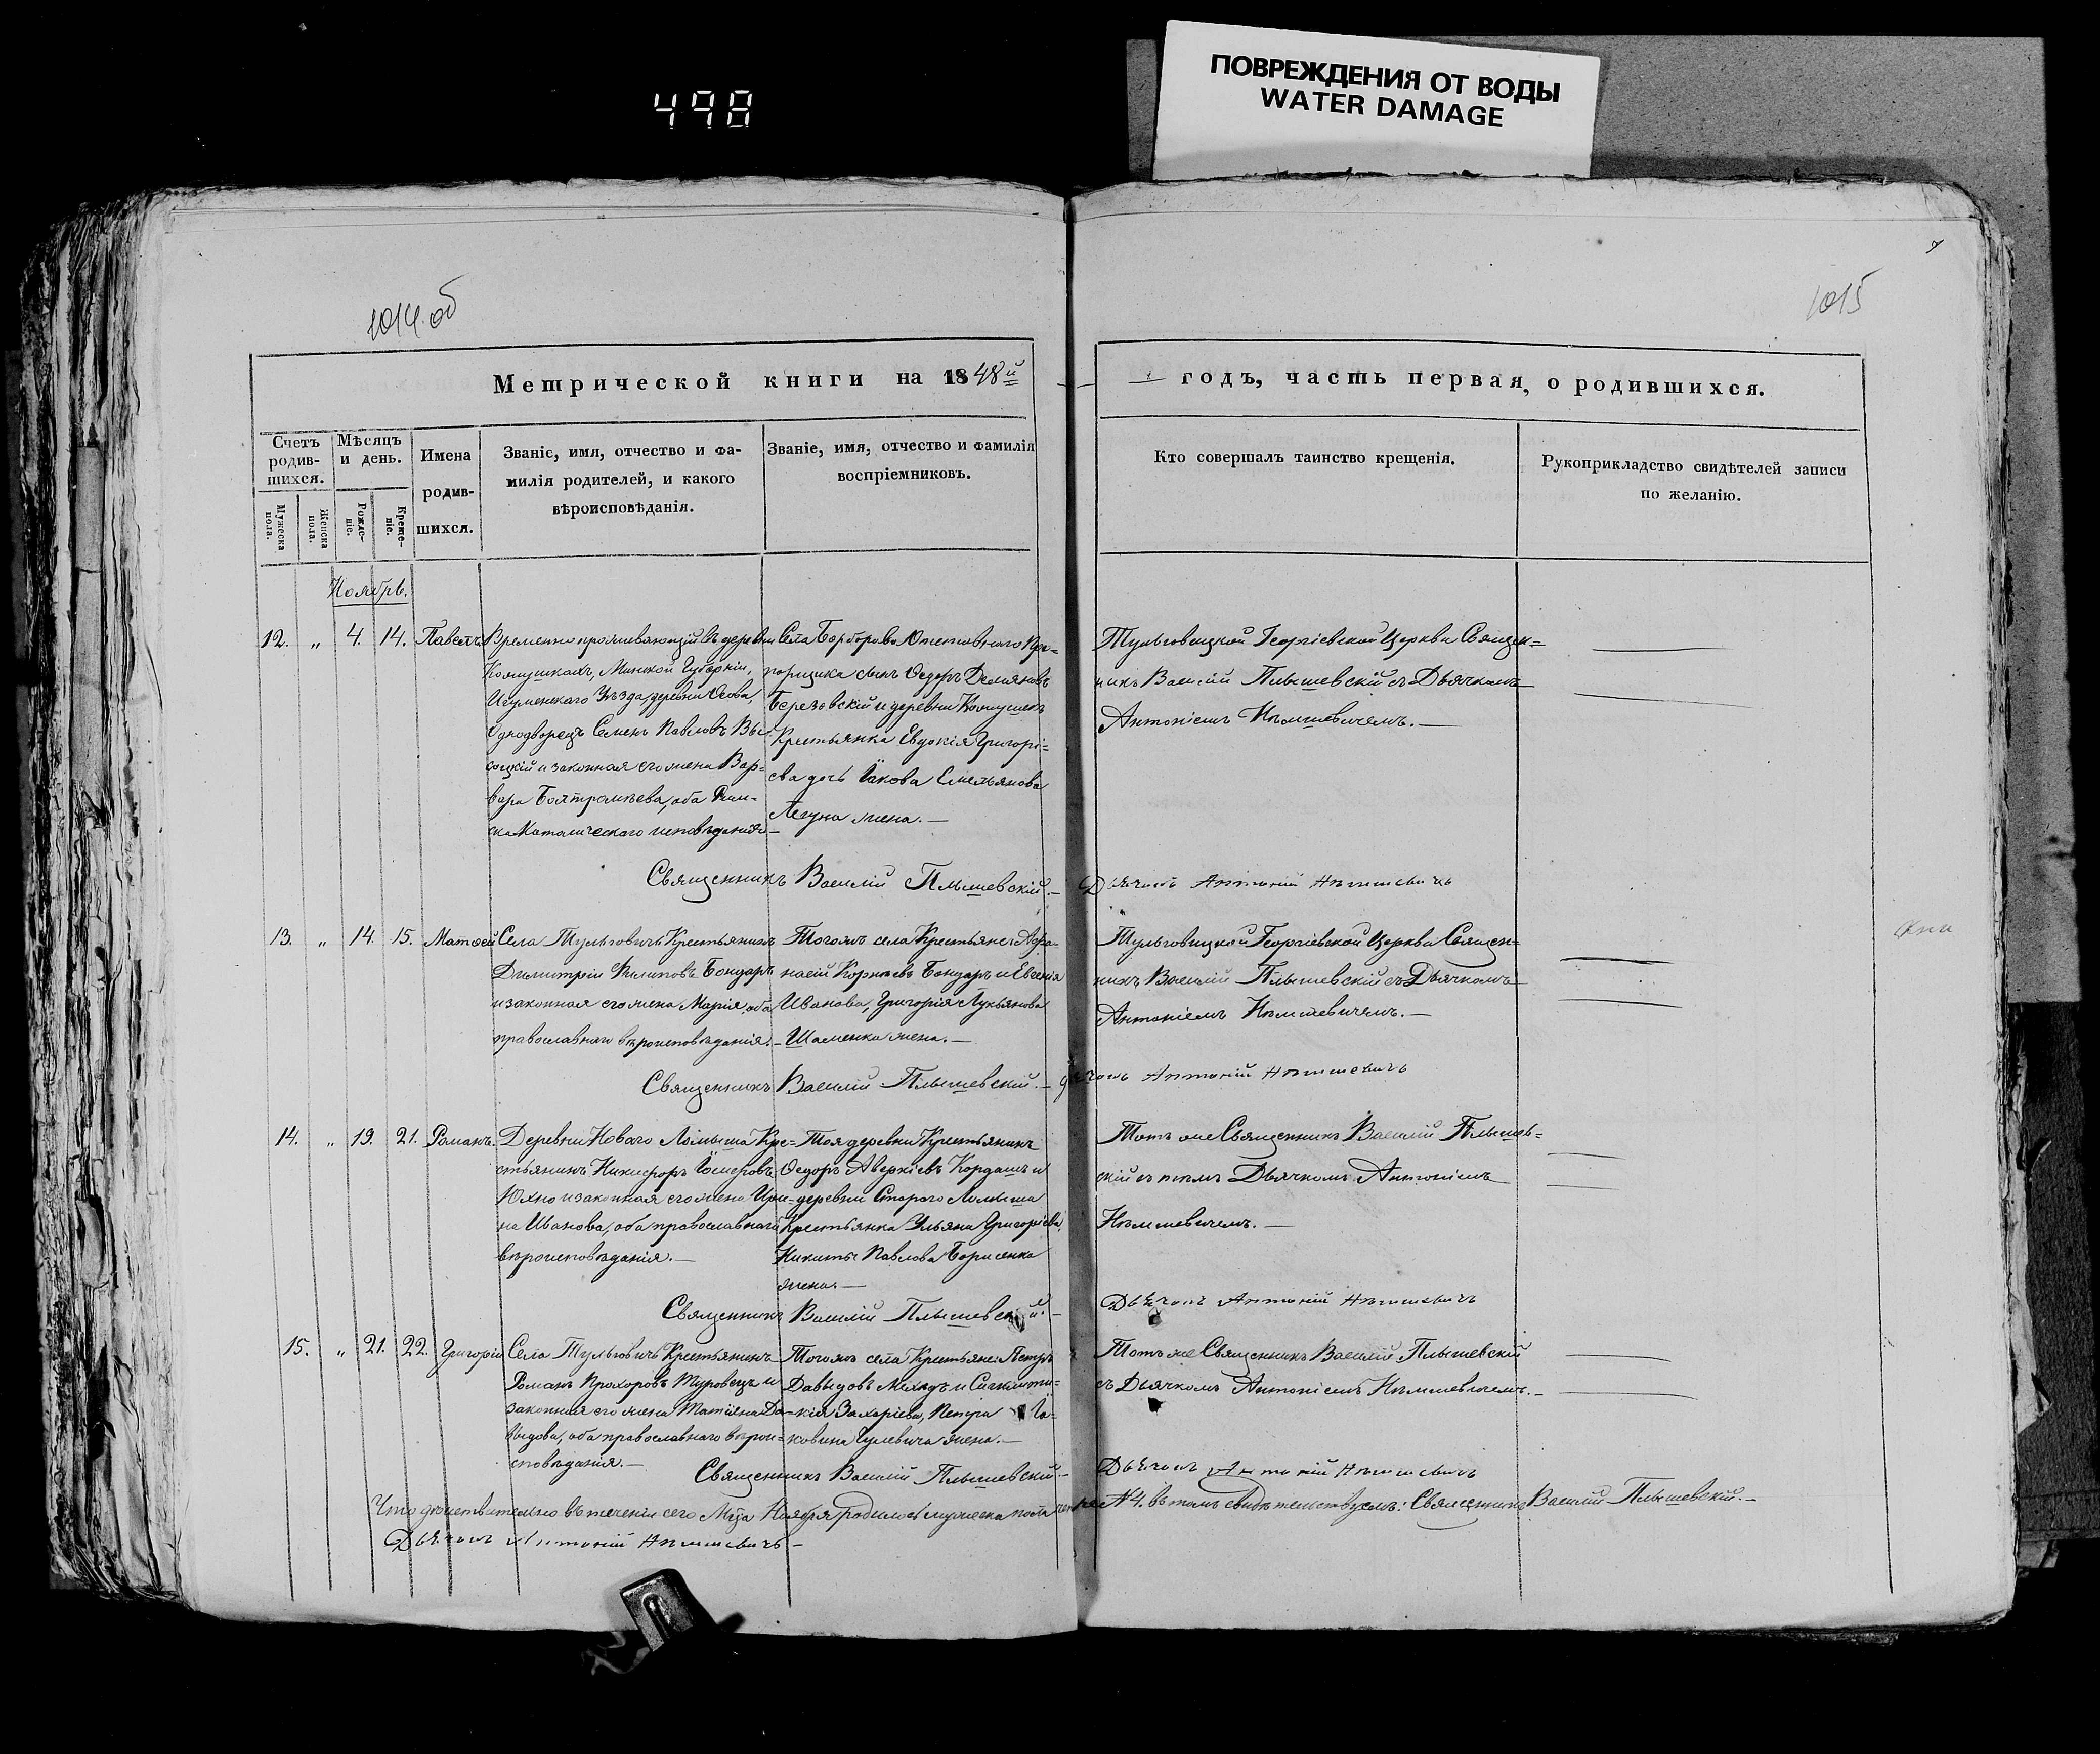 498
ПОВРЕЖДЕНИЯ ОТ ВОДЫ
WATER DAMAGE
1014 об
1015
Метрической книги на 1848й
годъ, часть первая, о родившихся.
Счетъ родив-шихся.
Мужеска пола.
Женска пола.
Мѣсяцъ и день.
Рожде-ніе.
Креще-ніе.
Имена родив-шихся.
Званіе, имя, отчество и фа-
милія родителей, и какого
вѣроисповѣданія.
Званіе, имя, отчество и фамилія
воспріемниковъ.
Кто совершалъ таинство крещенія.
Рукоприкладство свидѣтелей записи
по желанію.
Ноябрь.
12. „ 4. 14. Павелъ
Временно проживающій въ деревни
Комушкахъ, Минской Губерніи,
Игуменскаго Уѣзда, деревни Осова,
Однодворецъ Семенъ Павловъ Вы-
соцкій и законная его жена Вар-
вара, оба Рим-
ско Католическаго исповѣданія
Села Борборова Отставного Пра-
порщика сынъ Ѳедоръ Демяновъ
Березовскій и деревни
Крестьянка Евдокія Григорі-
ева дочь Іакова Емельянова
жена.—
Тульговицкой Георгіевской Церкви Священ=
никъ Василій Плышевскій съ Дьячкомъ
Антоніемъ Нѣмшевичемъ.—
Священникъ Василій Плышевскій.—
Дьячокъ Антоній Нѣмшевичъ
13. „ 14. 15. Матѳей
Села Тульговичъ Крестьянинъ
Димитрій Филиповъ Бондарь
и законная его жена Марія, оба
православнаго вѣроисповѣданія.—
Тогожъ села Крестьяне: Аѳа-
насій Корнѣевъ Бондарь и Евгенія
Иванова, Григорія Лукьянова
Шаменка жена.—
Тульговицкой Георгіевской Церкви Священ=
никъ Василій Плышевскій съ Дьячкомъ
Антоніемъ Нѣмшевичемъ.—
Священникъ Василій Плышевскій.—
Дьячокъ Антоній Нѣмшевичъ
14. „ 19. 21. Романъ.
Деревни Новаго Ломыша Кре=
стьянинъ Никифоръ Іосифовъ
Юхно и законная его жена Ири-
на Иванова, оба православнаго
вѣроисповѣданія.—
Тоя деревни Крестьянинъ
Ѳедоръ Аверкіевъ Кордашъ и
деревни Стараго Ломыша
Крестьянка Ульяна Григоріева,
Никиты Павлова Борисенка
жена.—
Тотъ же Священникъ Василій Плышев=
скій съ тѣмъ Дьячкомъ Антоніемъ
Нѣмшевичемъ.—
Священникъ Василій Плышевскій.—
Дьячокъ Антоній Нѣмшевичъ
15. „ 21. 22. Григорій
Села Тульговичъ Крестьянинъ
Романъ Прохоровъ Туровецъ и
законная его жена Татіяна Да-
выдова, оба православнаго вѣрои=
сповѣданія.—
Тогожъ села Крестьяне: Петръ
Давыдовъ и
кія Захаріева, Петра Іа-
кова жена.—
Тотъ же Священникъ Василій Плышевскій
съ Дьячкомъ Антоніемъ Нѣмшевичемъ.—
Священникъ Василій Плышевскій.—
Дьячокъ Антоній Нѣмшевичъ
Что дѣйствительно въ теченіи сего Мца Ноября родилось мужеска пола четыре №4. въ томъ свидѣтельствуемъ: Священникъ Василій Плышевскій.—
Дьячокъ Антоній Нѣмшевичъ—